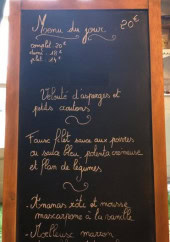 Menu du jour
20€
complet 20€
demi 18€
plat 14€
Velouté d'asperges et
petits croûtons
Faux filet sauce aux poivres
ou sauce bleu, polenta crémeuse
et flan de légumes
Ananas rôti et mousse
mascarpone à la vanille
Moelleux marron